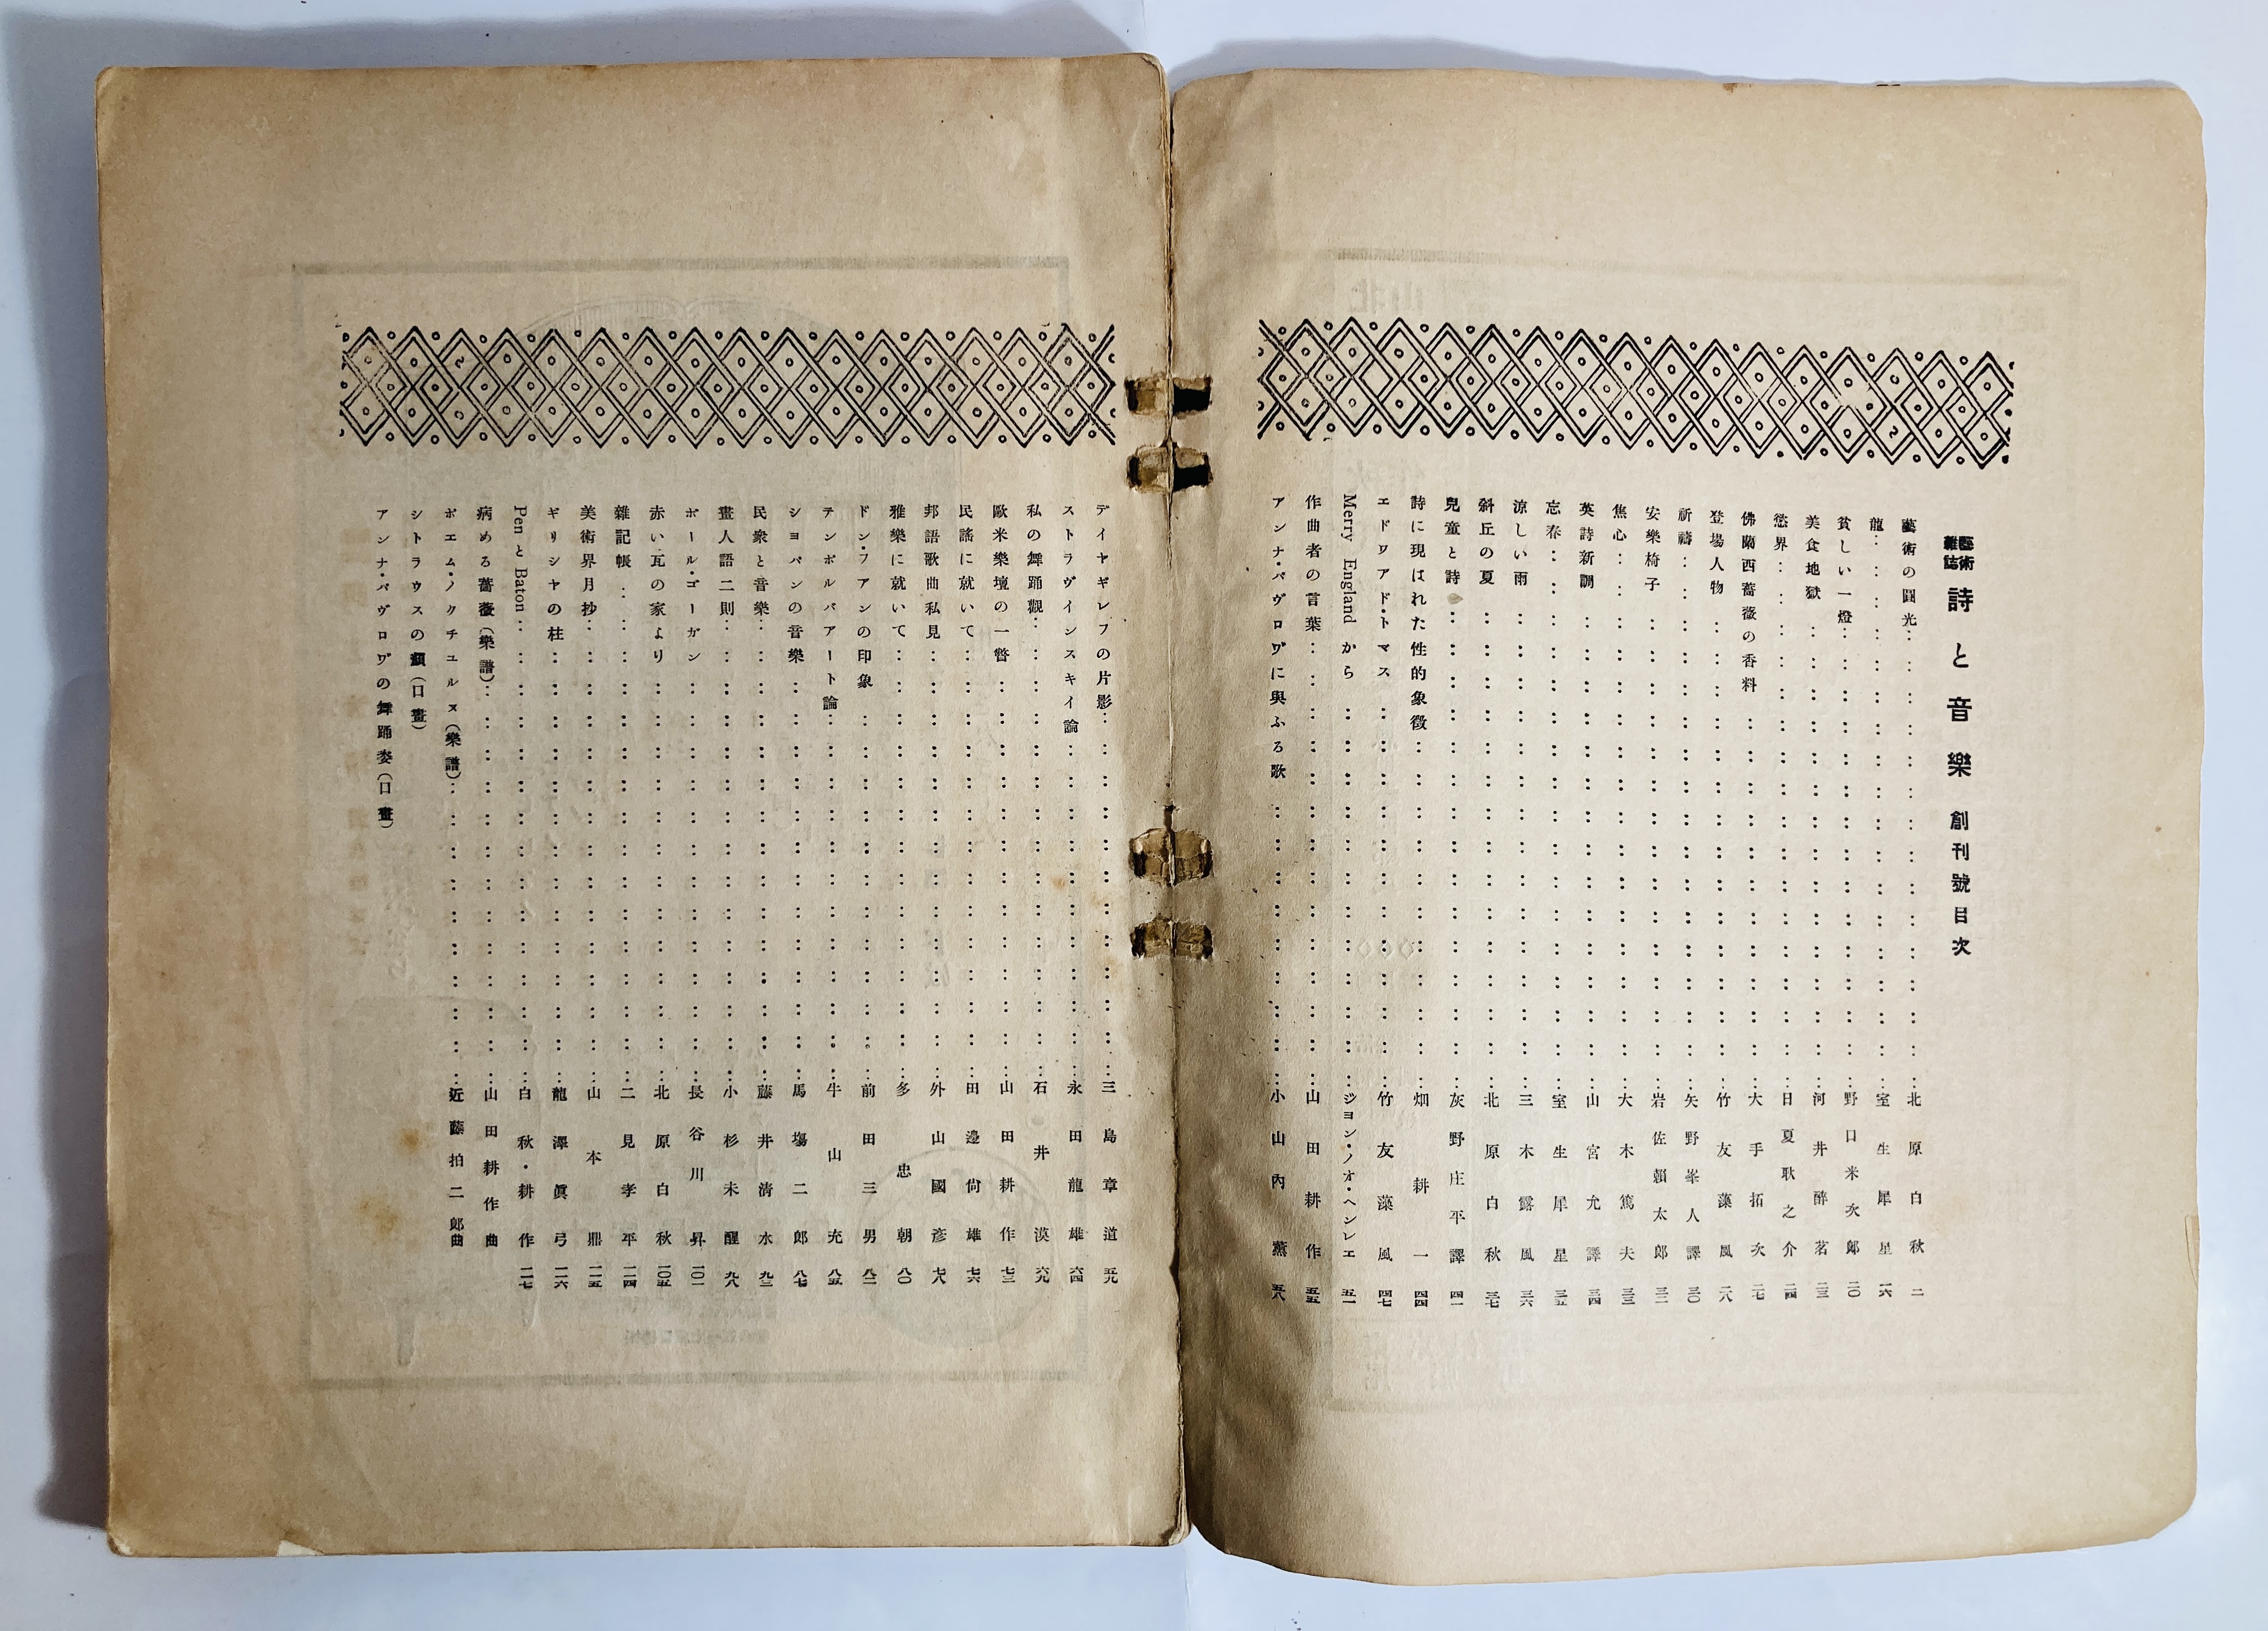 藝術雜誌 詩と音樂 創刊號目次
藝術の圓光 北原白秋 二
龍 室生犀星 一六
貧しい一燈 野口米次郎 二〇
美食地獄 河井醉茗 二三
慾界 日夏耿之介 二四
佛蘭西薔薇の香料 大手拓次 二七
登場人物 竹友藻風 二八
祈禱 矢野峯人譯 三〇
安樂椅子 岩佐賴太郎 三二
焦心 大木篤夫 三三
英詩新調 山宮允譯 三四
忘春 室生犀星 三五
涼しい雨 三木露風 三六
斜丘の夏 北原白秋 三七
兒童と詩 灰野庄平譯 四一
詩に現はれた性的象徵 畑耕一 四四
エドワアド・トマス 竹友藻風 四七
Merry England から ジヨン・ノオ・ヘンレエ 五一
作曲者の言葉 山田耕作 五五
アンナ・パヴロワに與ふる歌 小山內薰 五八
デイヤギレフの片影 三島章道 五九
ストラヴインスキイ論 永田龍雄 六四
私の舞踊觀 石井漠 六九
歐米樂壇の一瞥 山田耕作 七三
民謠に就いて 田邊尙雄 七六
邦語歌曲私見 外山國彥 七八
雅樂に就いて 多忠朝 八〇
ドン・フアンの印象 前田三男 八二
テンポルバアート論 牛山充 八五
シヨパンの音樂 馬塲二郎 八七
民衆と音樂 藤井淸水 九三
畫人語二則 小杉未醒 九八
ポール・ゴーガン 長谷川昇 一〇一
赤い瓦の家より 北原白秋 一〇五
雜記帳 二見孝平 一一四
美術界月抄 山本鼎 一一五
ギリシヤの柱 龍澤眞弓 一一六
Pen と Baton 白秋・耕作 一一七
病める薔薇(樂譜) 山田耕作曲
ポエム・ノクチユルヌ(樂譜) 近藤拍二郎曲
シトラウスの顏(口畫)
アンナ・パヴロワの舞踊姿(口畫)